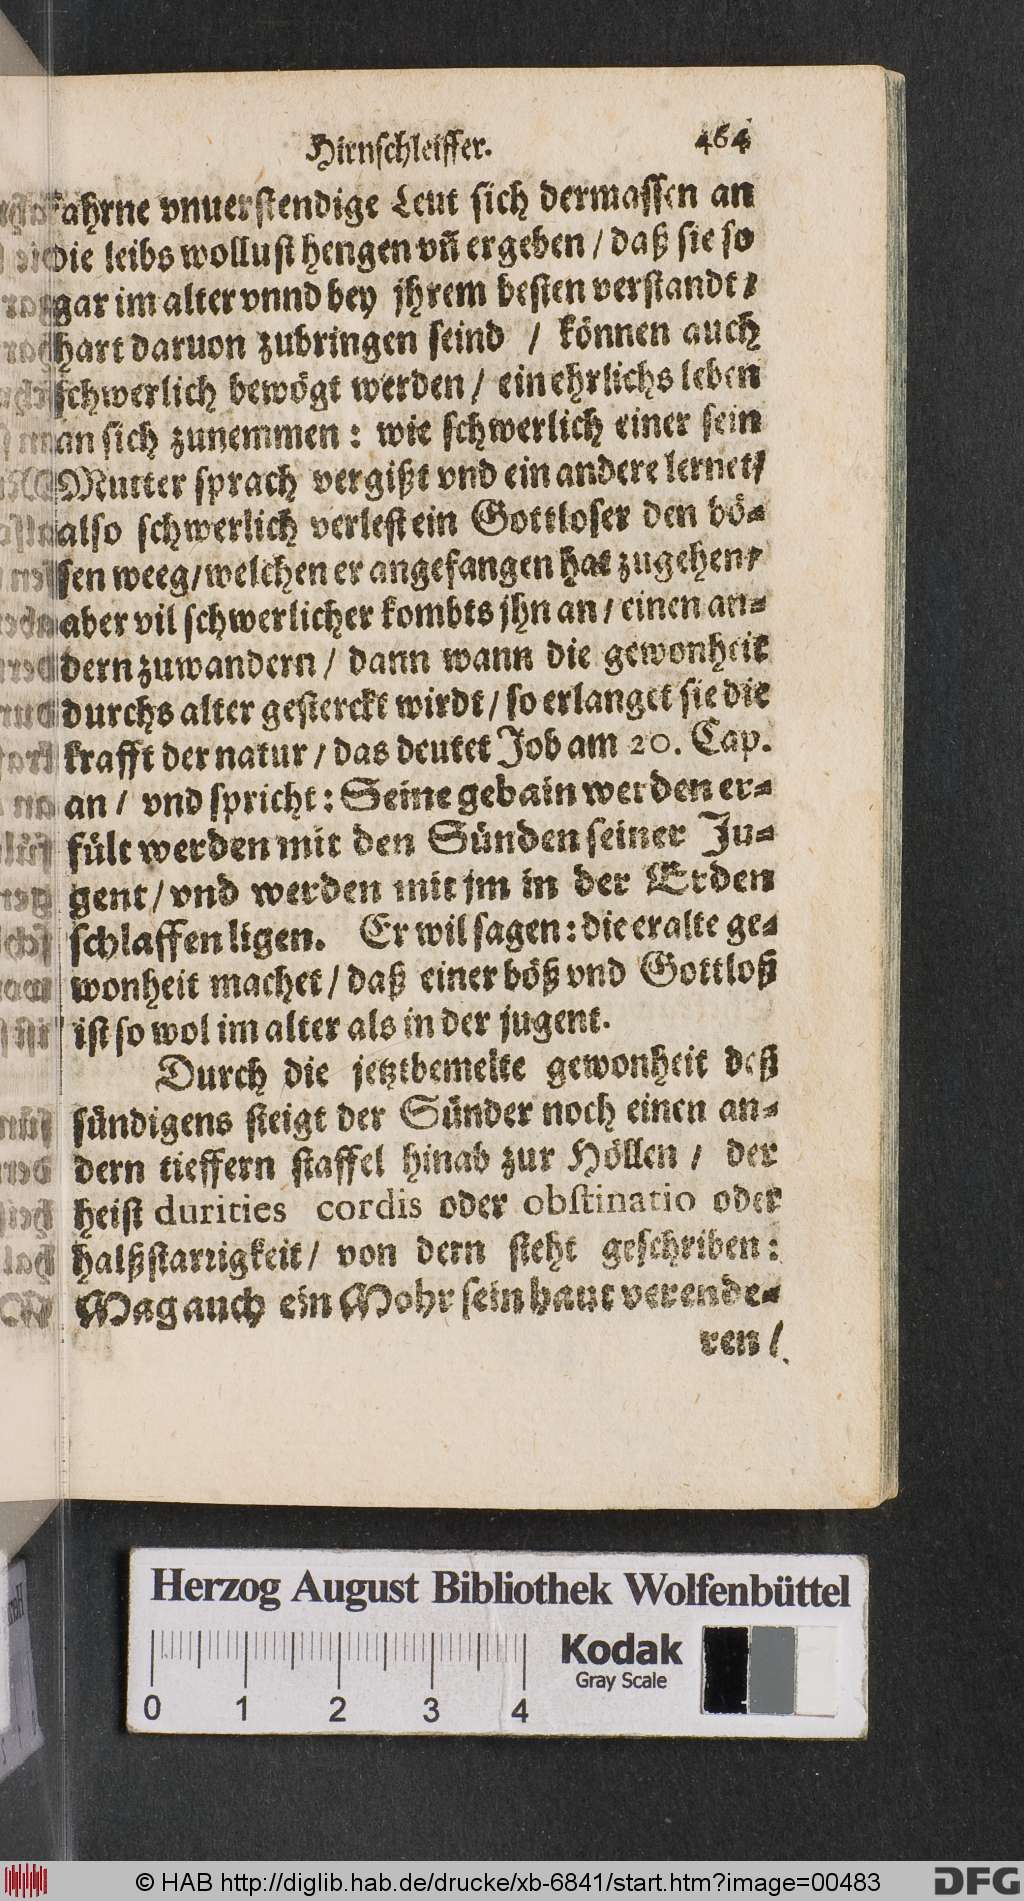 Hirnschleiffer. 464
fahrne vnuerstendige Leut sich dermassen an
die leibs wollust hengen vñ ergeben / daß sie so
gar im alter vnnd bey jhrem besten verstandt /
hart daruon zubringen seind / können auch
schwerlich bewögt werden / ein ehrlichs leben
an sich zunemmen : wie schwerlich einer sein
Mutter sprach vergißt vnd ein andere lernet /
also schwerlich verlest ein Gottloser den bö-
sen weeg / welchen er angefangen hat zugehen /
aber vil schwerlicher kombts jhn an / einen an-
dern zuwandern / dann wann die gewonheit
durchs alter gesterckt wirdt / so erlanget sie die
krafft der natur / das deutet Job am 20. Cap.
an / vnd spricht : Seine gebain werden er-
fült werden mit den Sünden seiner Ju-
gent / vnd werden mit jm in der Erden
schlaffen ligen. Er wil sagen : die eralte ge-
wonheit machet / daß einer böß vnd Gottloß
ist so wol im alter als in der jugent.
Durch die jetztbemelte gewonheit deß
sündigens steigt der Sünder noch einen an-
dern tieffern staffel hinab zur Höllen / der
heist durities cordis oder obstinatio oder
halßstarrigkeit / von dern steht geschriben :
Mag auch ein Mohr sein haut verende-
ren /
Herzog August Bibliothek Wolfenbüttel
Kodak
Gray Scale
0 1 2 3 4
© HAB http://diglib.hab.de/drucke/xb-6841/start.htm?image=00483
DFG